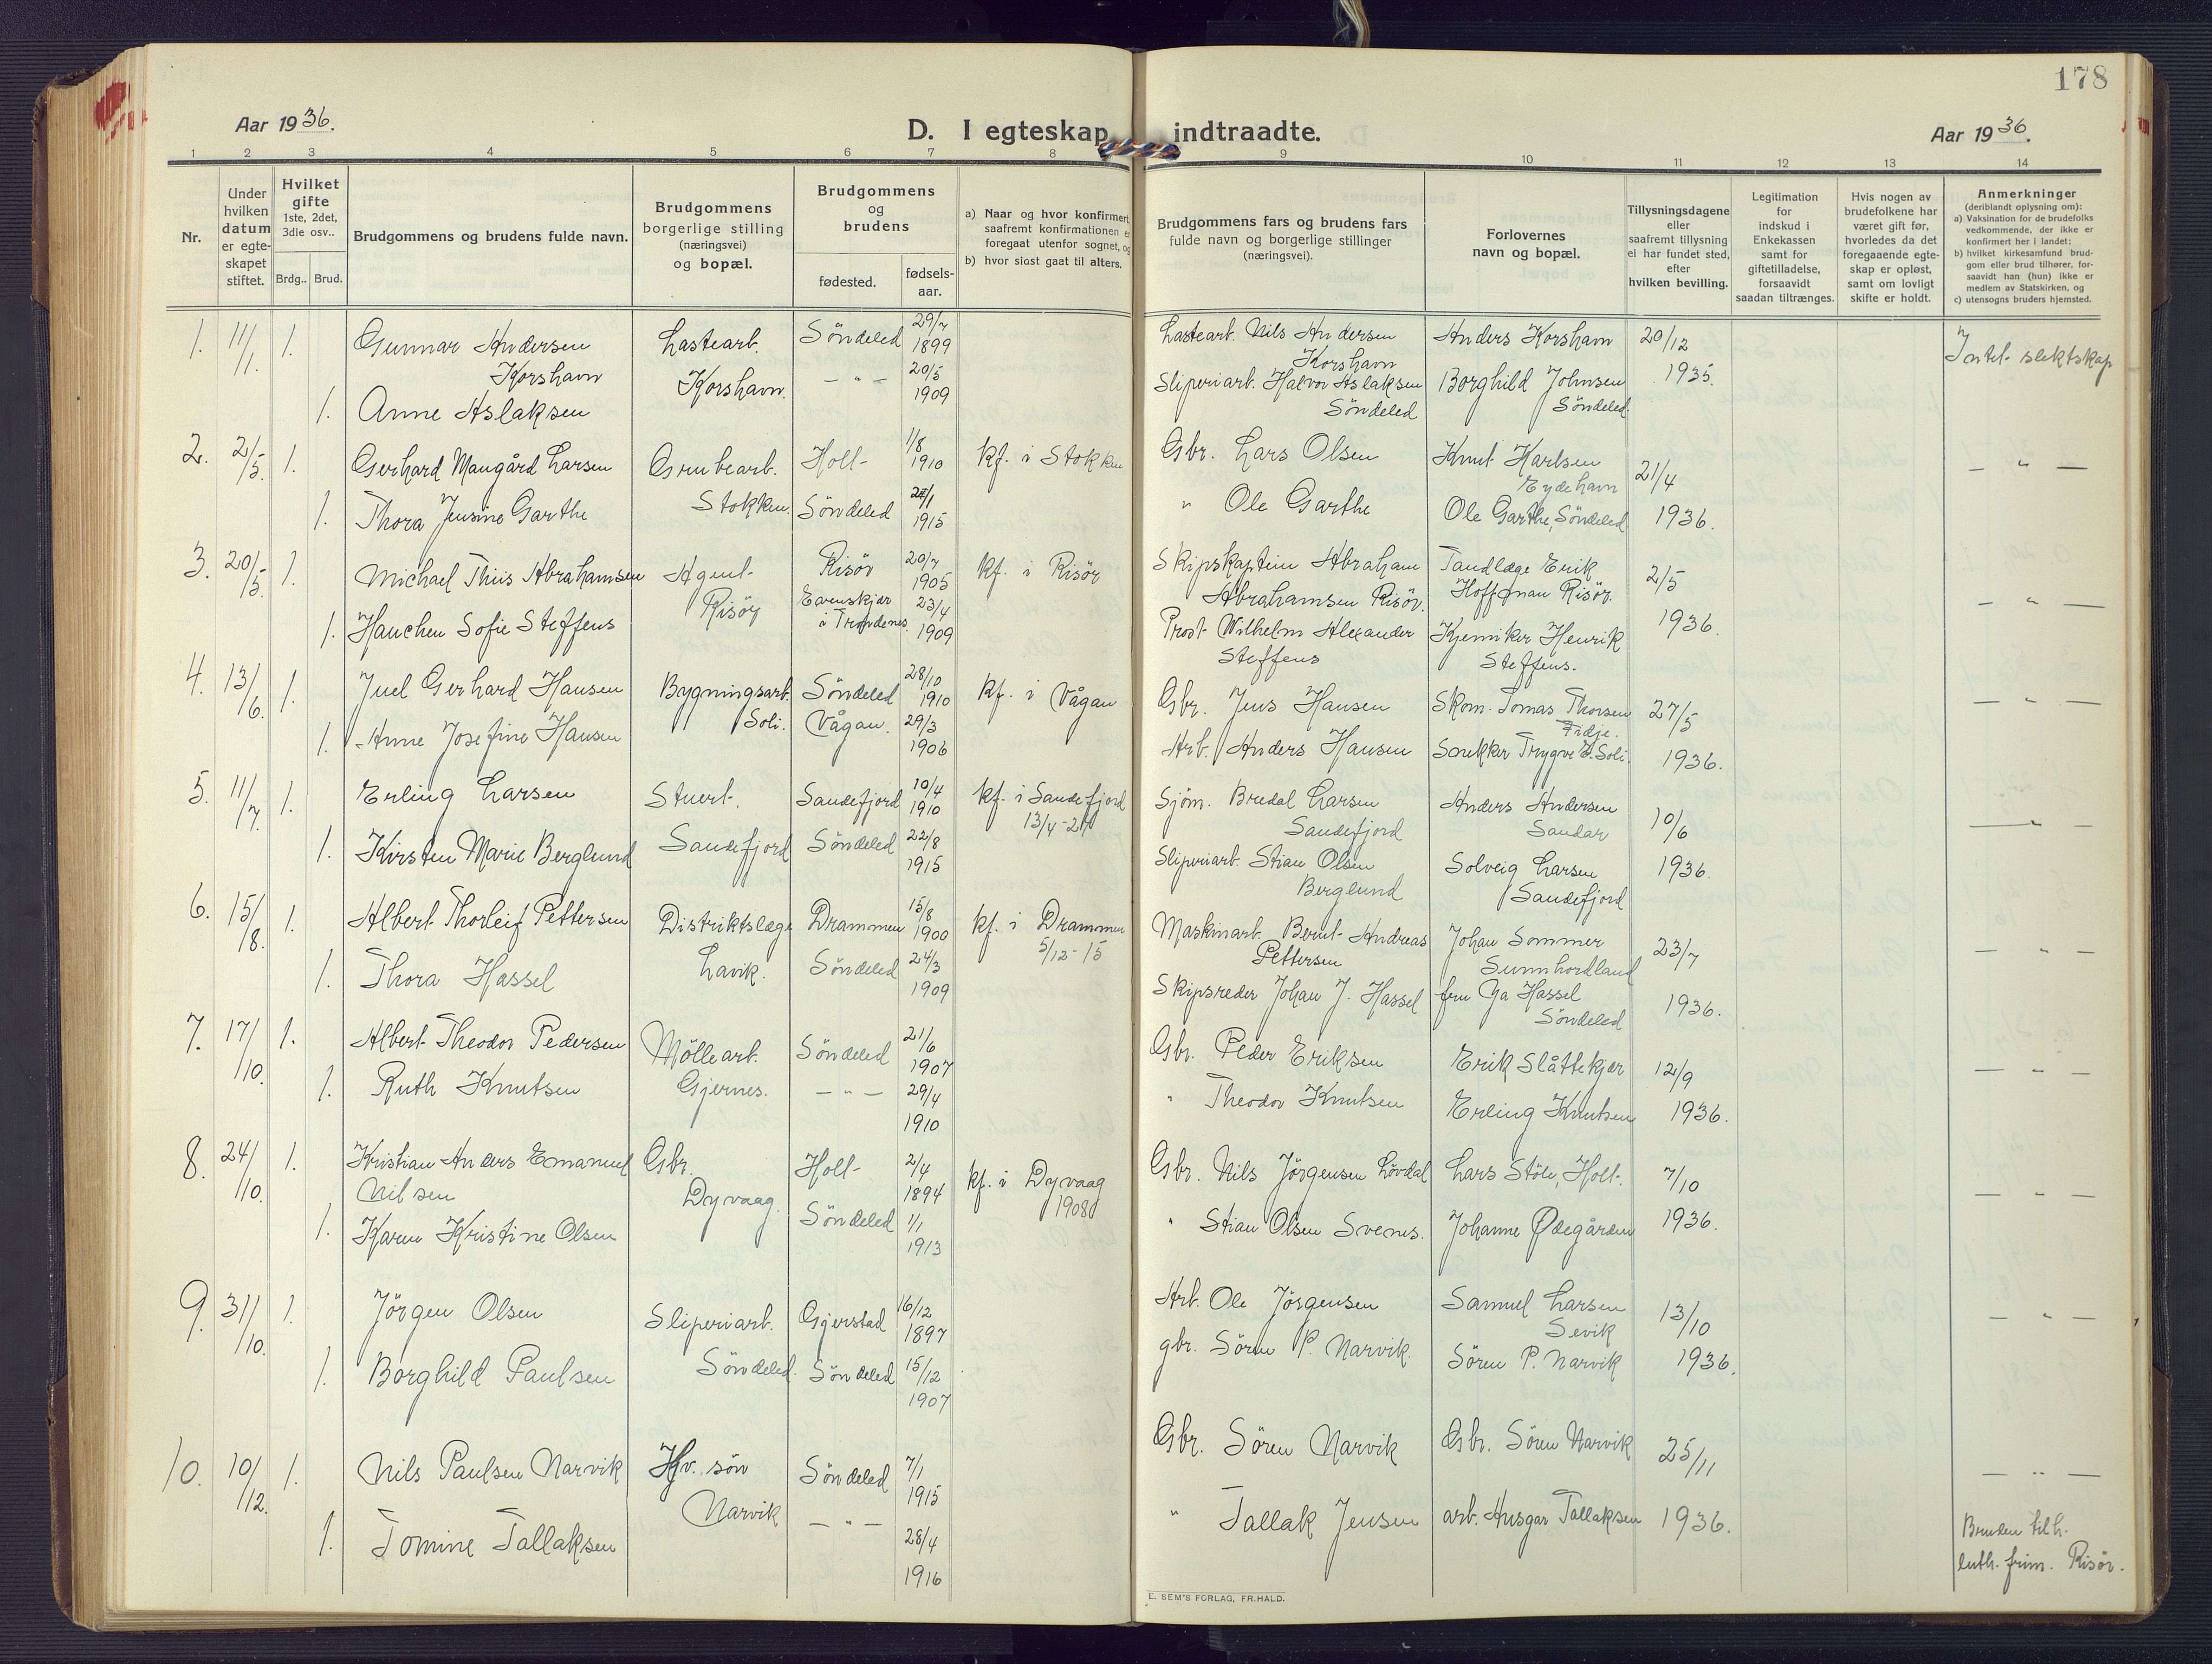 178
Aar 1936.
D. I egteskap indtraadte.
Aar 1936.
1 2 3 4 5 6 7 8 9 10 11 12 13 14
Nr.
Under hvilken datum er egteskapet stiftet.
Hvilket gifte 1ste, 2det, 3die osv..
Brdg.. Brud.
Brudgommens og brudens fulde navn.
Brudgommens borgerlige stilling (næringsvei) og bopæl.
Brudgommens og brudens
fødested.
fødsels-aar.
a) Naar og hvor konfirmert saafremt konfirmationen er foregaat utenfor sognet, og
b) hvor sidst gaat til alters.
Brudgommens fars og brudens fars fulde navn og borgerlige stillinger (næringsvei).
Forlovernes navn og bopæl.
Tillysningsdagene eller saafremt tillysning ei har fundet sted, efter hvilken bevilling.
Legitimation for indskud i Enkekassen samt for giftetilladelse, forsaavidt saadan tiltrænges.
Hvis nogen av brudefolkene har været gift før, hvorledes da det foregaaende egteskap er opløst, samt om lovligt skifte er holdt.
Anmerkninger
(deriblandt oplysning om):
a) Vaksination for de brudefolks vedkommende, der ikke er konfirmert her i landet;
b) hvilket kirkesamfund brudgom eller brud tilhører, forsaavidt han (hun) ikke er medlem av Statskirken, og
c) utensogns bruders hjemsted.
1. 11/1. 1. Gunnar Andersen Korshavn Lastearb. Korshavn. Söndeled 29/7 1899 Lastearb. Nils Andersen Korshavn Anders Korshavn 20/12 1935. Intet slektskap
1. Anne Aslaksen — " — 20/5 1909 Sliperiarb. Halvor Aslaksen Söndeled Borghild Johnsen Söndeled.
2. 2/5. 1. Gerhard Maugård Larsen Grubearb. Stokken. Holt 1/8 1910 kf. i Stokken Gbr. Lars Olsen Knut Karlsen Eydehavn 21/4 1936. — " —
1. Thora Jensine Garthe Söndeled 1915 " Ole Garthe Ole Garthe, Söndeled
3. 20/5. 1. Michael Thiis Abrahamsen Agent Risör Risör 20/7 1905 kf. i Risör Skipskaptein Abraham Abrahamsen Risör. Tandlæge Erik Hoffman Risör. 2/5 1936. — " —
1. Hanchen Sofie Steffens Evenskjær i Trondenes 23/4 1909 Prost Wilhelm Alexander Steffens Kjemiker Henrik Steffens.
4. 13/6. 1. Juel Gerhard Hansen Bygningsarb. Soli. Söndeled 28/10 1910 kf. i Vågan Gbr. Jens Hansen Skom. Tomas Thorsen Fidje. 27/5 1936. — " —
1. Anne Josefine Hansen Vågan. 29/3 1906 Arb. Anders Hansen Snekker Trygve E. Soli.
5. 11/7. 1. Erling Larsen Stuert. Sandefjord Sandefjord 10/4 1910 kf. i Sandefjord 13/4-24 Sjöm. Bredal Larsen Sandefjord Anders Andersen Sandar 10/6 1936. — " —
1. Kirsten Marie Berglund Söndeled 22/8 1915 Sliperiarb. Stian Olsen Berglund Solveig Larsen Sandefjord
6. 15/8. 1. Albert Thorleif Pettersen Distriktslæge Lavik. Drammen 15/8 1900 kf. i Drammen 5/12-15 Maskinarb. Bernt Andreas Pettersen Johan Sommer Sunnhordland 23/7 1936. — " —
1. Thora Hassel Söndeled 24/3 1909 Skipsreder Johan J. Hassel fru Ya Hassel Söndeled
7. 17/10. 1. Albert Theodor Pedersen Möllearb. Gjernes. Söndeled 21/6 1907 Gbr. Peder Eriksen Erik Slåttekjær 12/9 1936. — " —
1. Ruth Knutsen — " — 29/4 1910 " Theodor Knutsen Erling Knutsen
8. 24/10. 1. Kristian Anders Emanuel Nilsen Gbr. Dyvaag. Holt 2/4 1894 kf. i Dyvaag 1908 Gbr. Nils Jörgensen Lövdal Lars Stöle, Holt. 7/10 1936. — " —
1. Karen Kristine Olsen Söndeled 1/1 1913 " Stian Olsen Svenes. Johanne Ødegården
9. 31/10. 1. Jörgen Olsen Sliperiarb. Söndeled. Gjerstad 16/12 1897 Arb. Ole Jörgensen Samuel Larsen Sevik 13/10 1936. — " —
1. Borghild Paulsen Söndeled 15/12 1907 gbr. Sören P. Narvik. Sören P. Narvik
10. 10/12. 1. Nils Paulsen Narvik Hv. sön Narvik Söndeled 7/1 1915 Gbr. Sören Narvik Gbr. Sören Narvik 25/11 1936. — " —
1. Tomine Tallaksen — " — 28/4 1916 " Tallak Jensen arb. Ansgar Tallaksen Bruden tilh. luth. frim. Risör.
E. SEM'S FORLAG, FR.HALD.